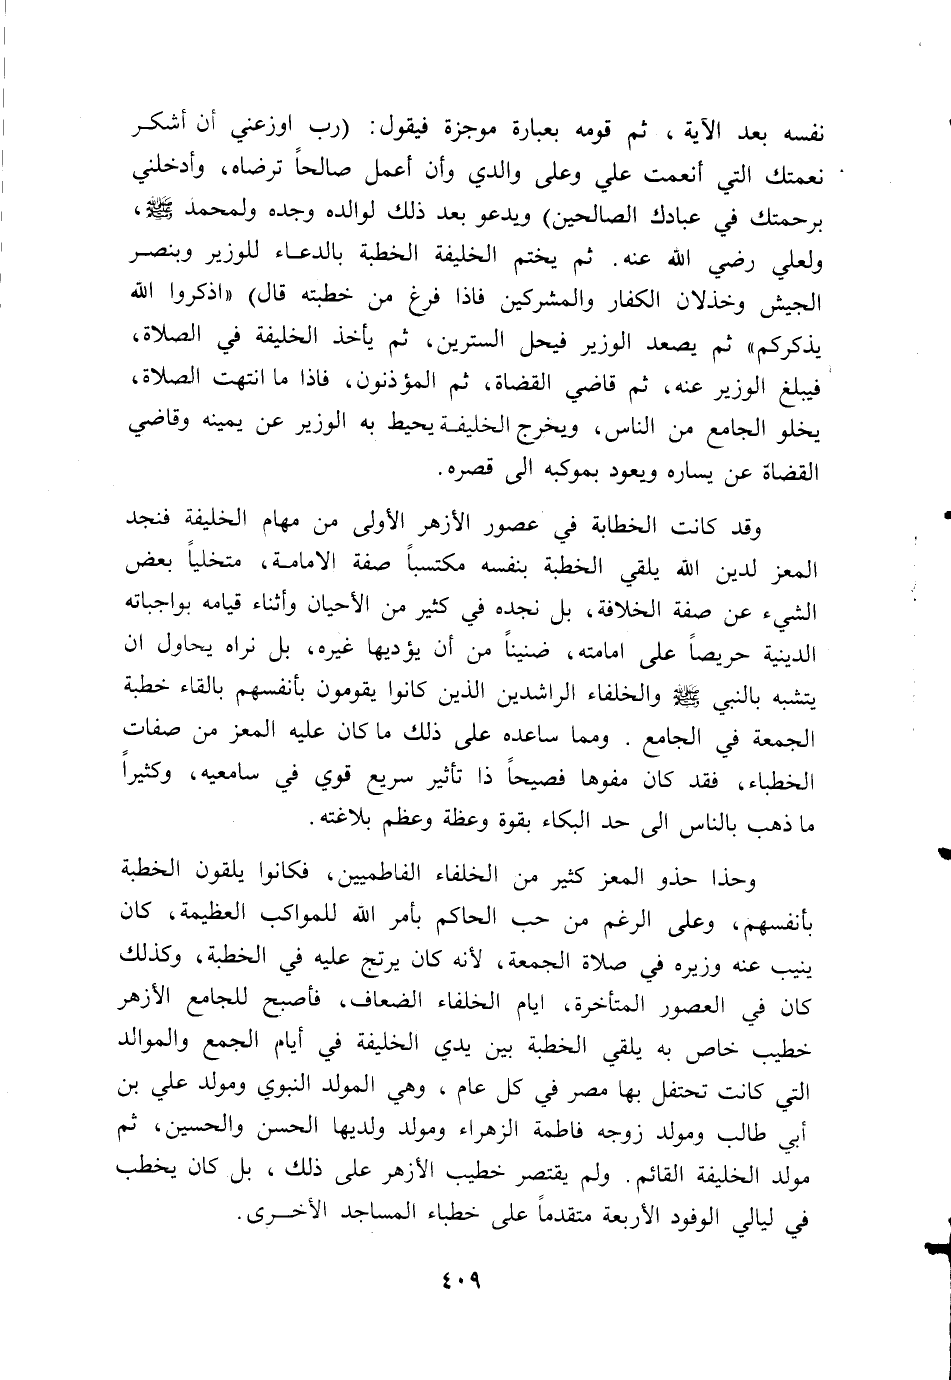 نفسه بعد الآية ، ثم قومه بعبارة موجزة فيقول: (رب اوزعني أن أشكر
نعمتك التي أنعمت علي وعلى والدي وأن أعمل صالحاً ترضاه، وأدخلني
برحمتك في عبادك الصالحين) ويدعو بعد ذلك لوالده وجده ولمحمد ﷺ،
ولعلي رضي الله عنه. ثم يختم الخليفة الخطبة بالدعاء للوزير وبنصر
الجيش وخذلان الكفار والمشركين فاذا فرغ من خطبته قال) «اذكروا الله
يذكركم» ثم يصعد الوزير فيحل السترين، ثم يأخذ الخليفة في الصلاة،
فيبلغ الوزير عنه، ثم قاضي القضاة، ثم المؤذنون، فاذا ما انتهت الصلاة،
يخلو الجامع من الناس، ويخرج الخليفة يحيط به الوزير عن يمينه وقاضي
القضاة عن يساره ويعود بموكبه الى قصره.
وقد كانت الخطابة في عصور الأزهر الأولى من مهام الخليفة فنجد
المعز لدين الله يلقي الخطبة بنفسه مكتسباً صفة الامامة، متخلياً بعض
الشيء عن صفة الخلافة، بل نجده في كثير من الأحيان وأثناء قيامه بواجباته
الدينية حريصاً على امامته، ضنيناً من أن يؤديها غيره، بل نراه يحاول ان
يتشبه بالنبي ﷺ والخلفاء الراشدين الذين كانوا يقومون بأنفسهم بالقاء خطبة
الجمعة في الجامع . ومما ساعده على ذلك ما كان عليه المعز من صفات
الخطباء، فقد كان مفوها فصيحاً ذا تأثير سريع قوي في سامعيه، وكثيراً
ما ذهب بالناس الى حد البكاء بقوة وعظة وعظم بلاغته.
وحذا حذو المعز كثير من الخلفاء الفاطميين، فكانوا يلقون الخطبة
بأنفسهم، وعلى الرغم من حب الحاكم بأمر الله للمواكب العظيمة، كان
ينيب عنه وزيره في صلاة الجمعة، لأنه كان يرتج عليه في الخطبة، وكذلك
كان في العصور المتأخرة، ايام الخلفاء الضعاف، فأصبح للجامع الأزهر
خطيب خاص به يلقي الخطبة بين يدي الخليفة في أيام الجمع والموالد
التي كانت تحتفل بها مصر في كل عام ، وهي المولد النبوي ومولد علي بن
أبي طالب ومولد زوجه فاطمة الزهراء ومولد ولديها الحسن والحسين، ثم
مولد الخليفة القائم. ولم يقتصر خطيب الأزهر على ذلك ، بل كان يخطب
في ليالي الوفود الأربعة متقدماً على خطباء المساجد الأخرى.
٤٠٩